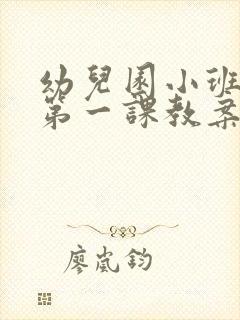 幼兒園小班
第一課教案
廖嵐鈞